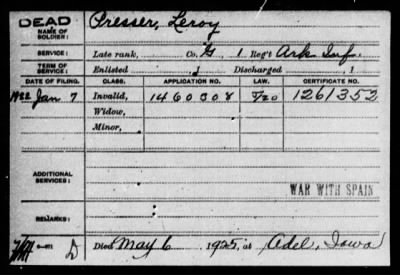 DEAD Presser, Leroy
NAME OF SOLDIER:
SERVICE: Late rank, Co. G, 1 Reg't Ark Inf.
TERM OF SERVICE: Enlisted , 1 Discharged , 1
DATE OF FILING. CLASS. APPLICATION NO. LAW. CERTIFICATE NO.
1922 Jan 7 Invalid, 1460308 1261352
Widow,
Minor,
ADDITIONAL SERVICES: WAR WITH SPAIN
REMARKS:
Died May 6 1925, at Adel, Iowa